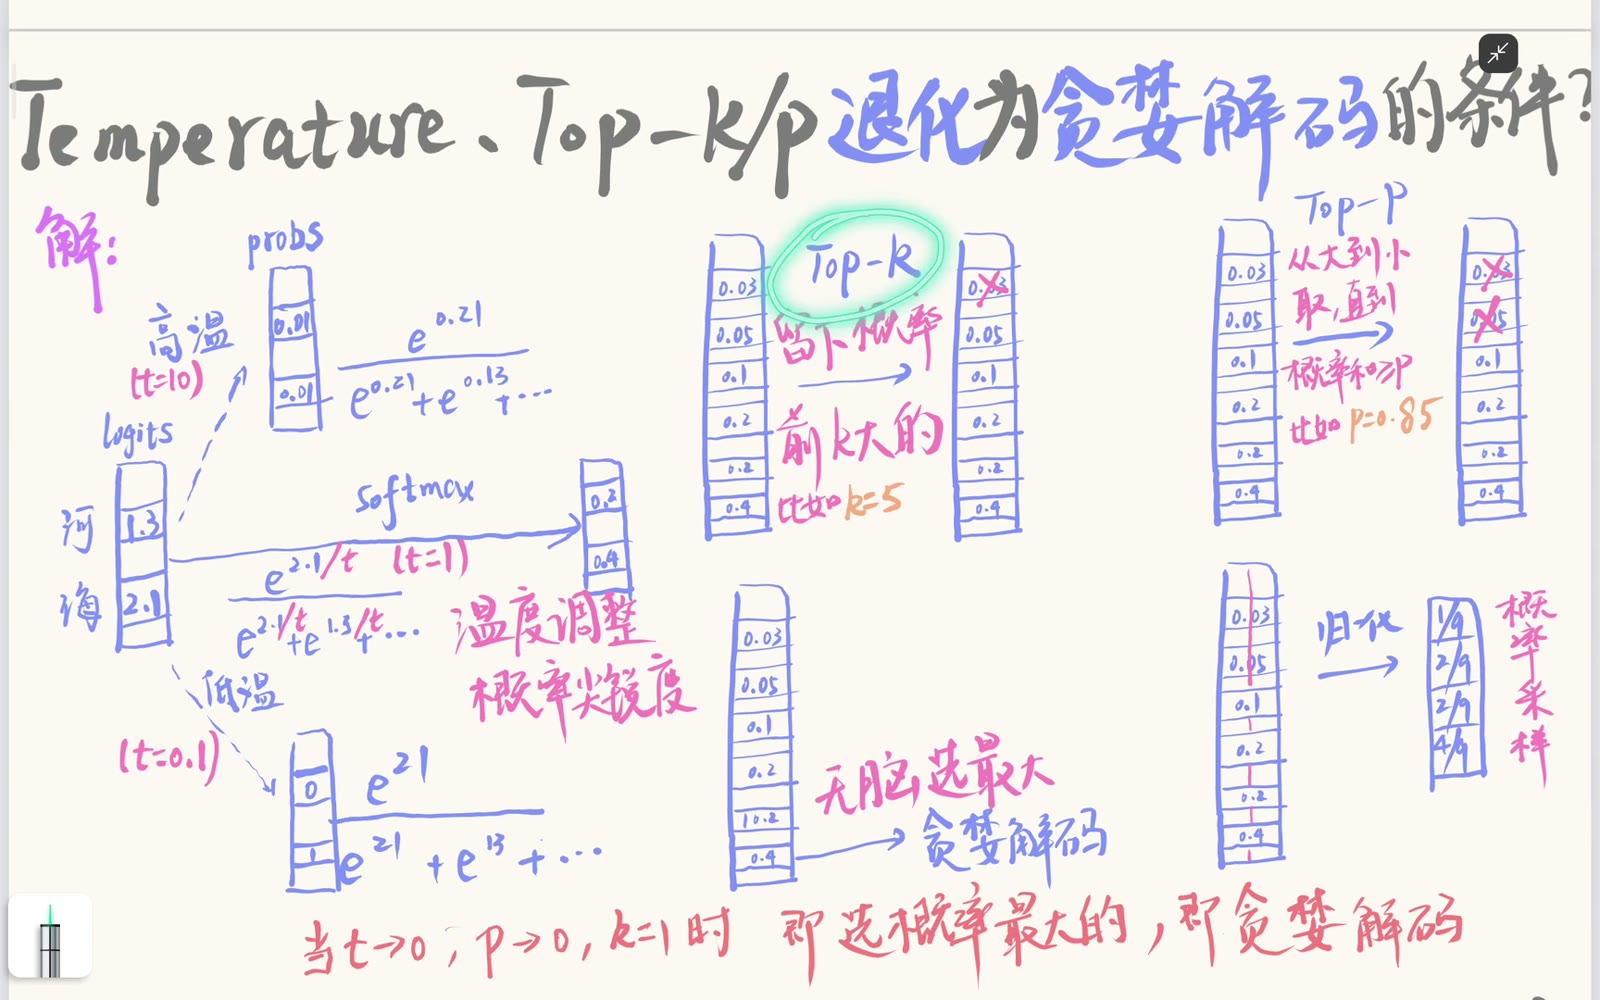 Temperature、Top-k/p退化为贪婪解码的条件?
解:
probs
0.01
0.01
高温
(t=10)
e^0.21
e^0.21+e^0.13+…
logits
河
1.3
海
2.1
softmax
e^2.1/t (t=1)
e^2.1/t+e^1.3/t+…
0.2
0.4
温度调整
概率尖锐度
低温
(t=0.1)
0
1
e^21
e^21+e^13+…
0.03
0.05
0.1
0.2
0.2
0.4
Top-k
留下概率
前k大的
比如k=5
0.03
0.05
0.1
0.2
0.2
0.4
Top-P
0.03
0.05
0.1
0.2
0.2
0.4
从大到小
取,直到
概率和≥P
比如P=0.85
0.03
0.05
0.1
0.2
0.2
0.4
0.03
0.05
0.1
0.2
0.2
0.4
无脑选最大
贪婪解码
0.03
0.05
0.1
0.2
0.2
0.4
归一化
1/9
2/9
2/9
4/9
概
率
采
样
当t→0,p→0,k=1时 即选概率最大的,即贪婪解码